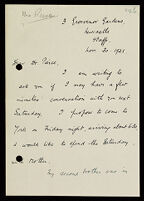 3 Grosvenor Gardens,
Newcastle
Staffs.
Nov. 20. 1921
Dear Dr. Pierce,
I am writing to
ask you if I may have a few
minutes conversation with you next
Saturday. I propose to come to
York on Friday night arriving about 6.30
I would like to spend the Saturday
Mother.
My second brother was in